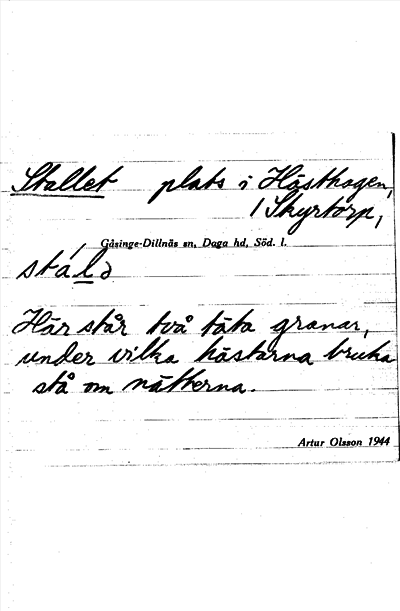 Stallet plats i Hästhagen,
1 Skyrtorp,
Gåsinge-Dillnäs sn, Daga hd, Söd. l.
stálə
Här står två täta granar,
under vilka hästarna bruka
stå om nätterna.
Artur Olsson 1944